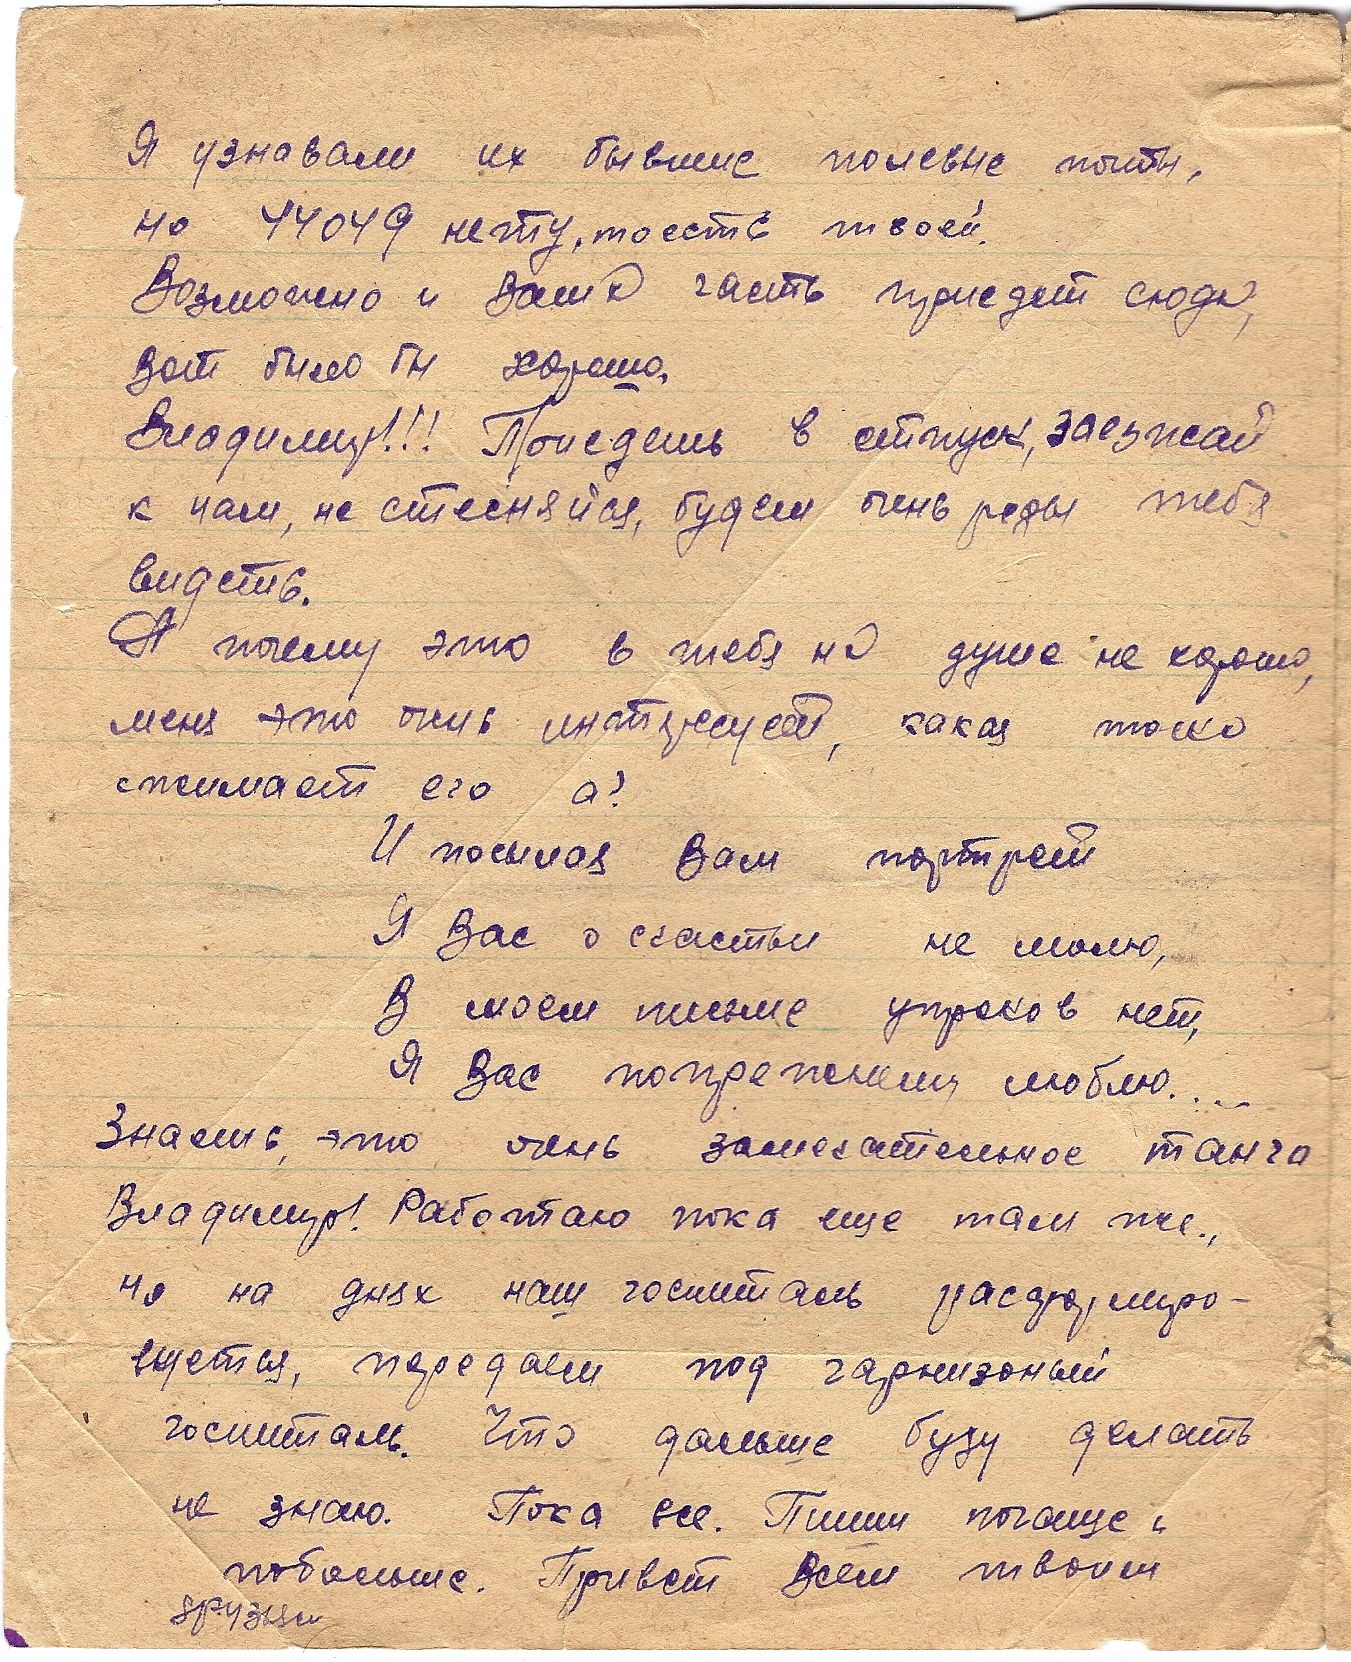 Я узнавали их бывшие полевые почты,
но 44049 нету, тоесть твоей.
Возможно и Ваша часть приедет сюда,
вот было бы хорошо.
Владимир!!! Приедешь в отпуск, заезжай
к нам, не стесняйся, будем очень рады тебя
видеть.
А почему это в тебя на душе не хорошо,
меня это очень интересует, какая тоска
сжимает его а?
И посылая Вам портрет
Я Вас о счастьи не молю,
В моем письме упреков нет,
Я Вас попрежнему люблю....
Знаешь, это очень замечательное танго
Владимир! Работаю пока еще там же.,
но на днях наш госпиталь расформиро-
вуется, передаем под гарнизоный
госпиталь. Что дальше буду делать
не знаю. Пока все. Пиши почаще и
побольше. Привет всем твоим
друзям